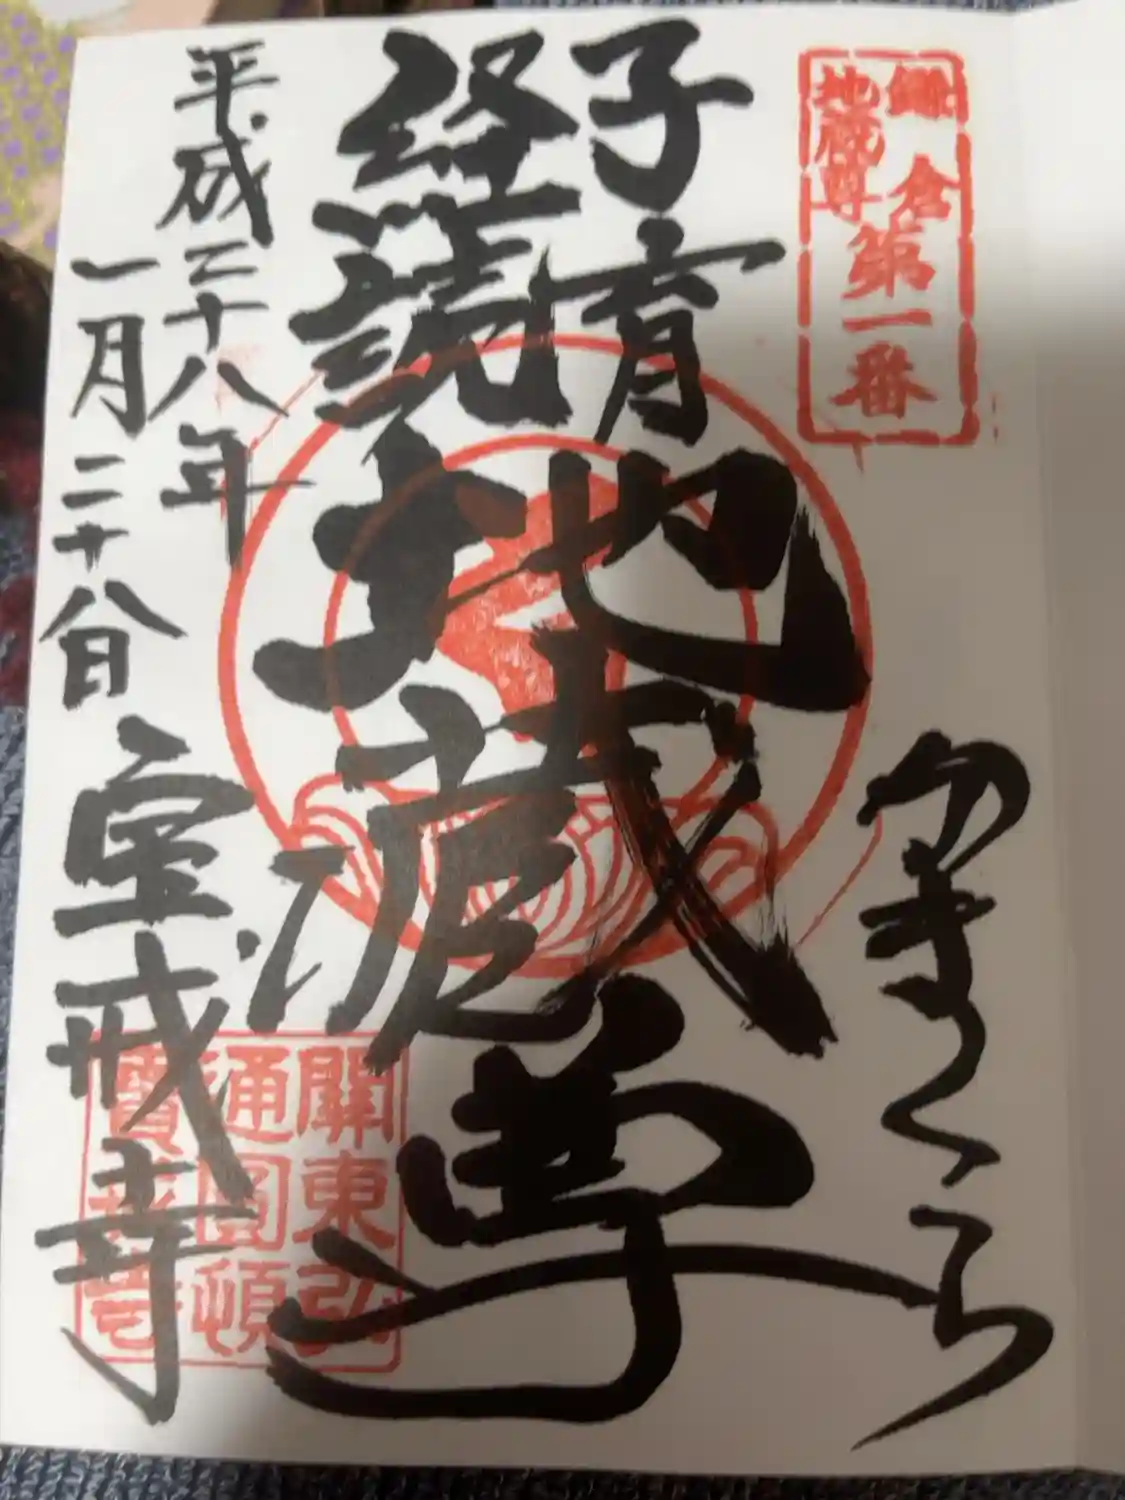 鎌倉
地蔵尊
第一番
かまくら
子育
経読
地蔵尊
平成二十八年
一月二十八日
宝戒寺
關東弘
通圓頓
寶戒寺